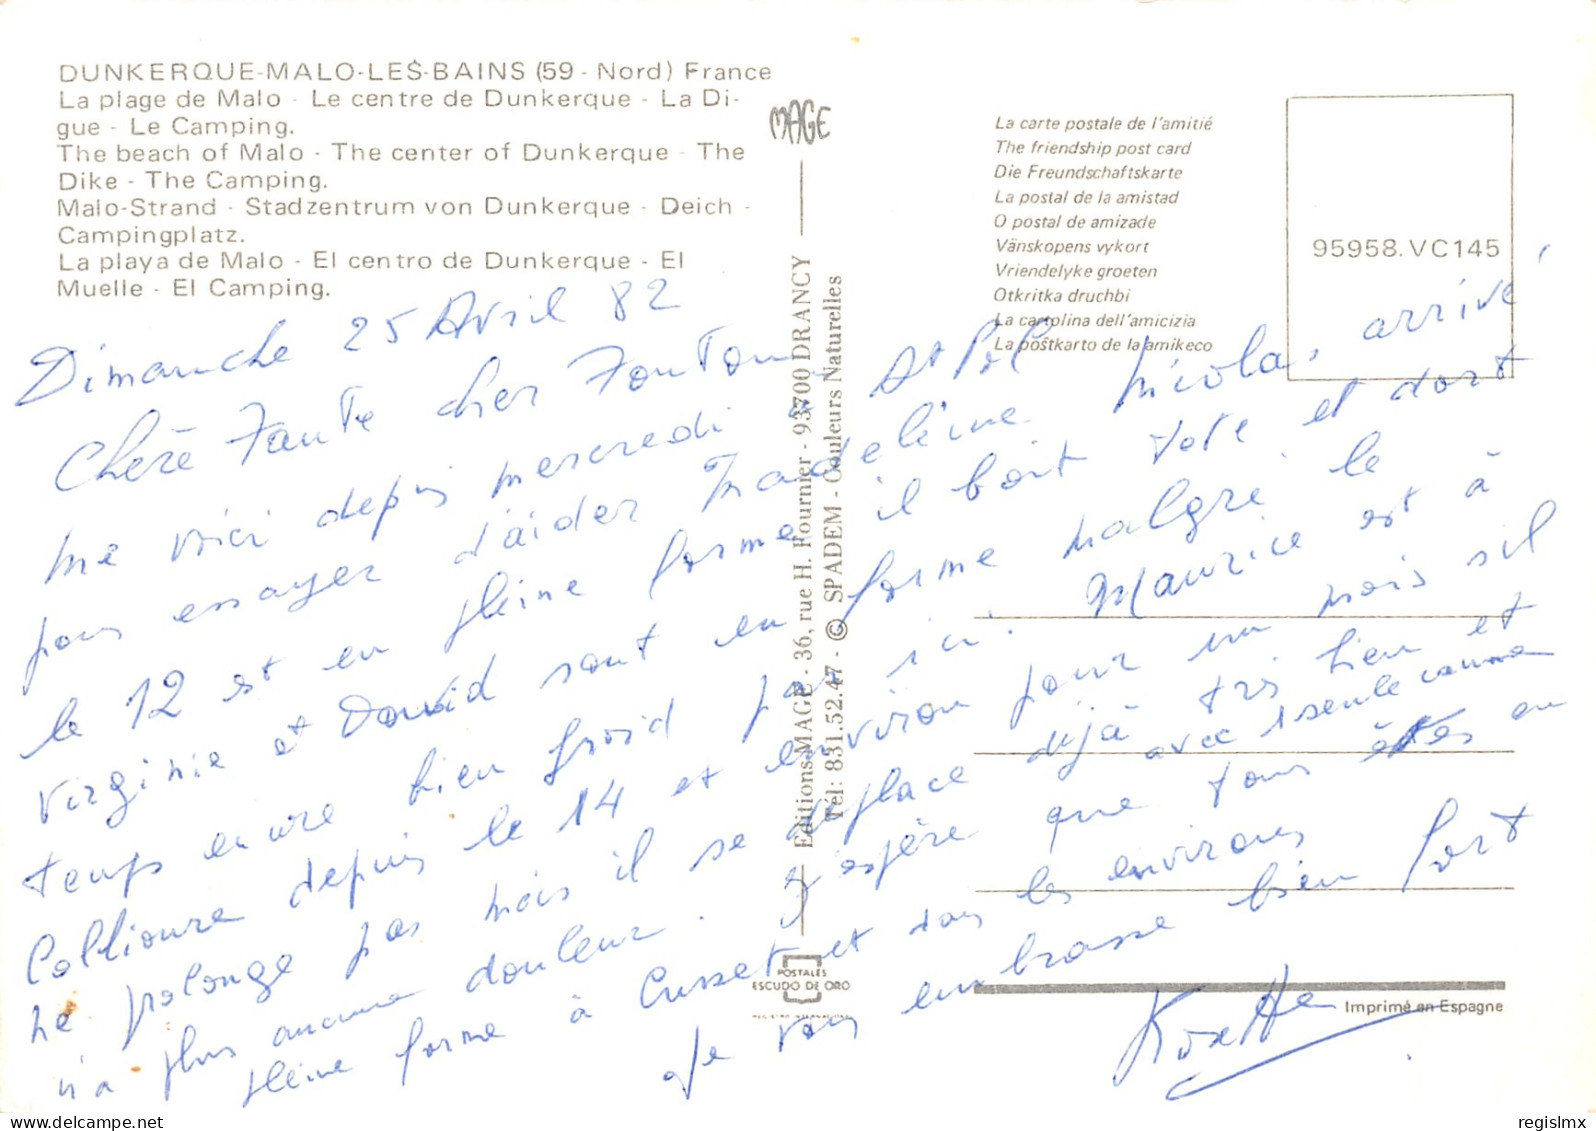 DUNKERQUE-MALO-LES-BAINS (59 - Nord) France
La plage de Malo - Le centre de Dunkerque - La Di-
gue - Le Camping.
The beach of Malo - The center of Dunkerque - The
Dike - The Camping.
Malo-Strand - Stadzentrum von Dunkerque - Deich -
Campingplatz.
La playa de Malo - El centro de Dunkerque - El
Muelle - El Camping.
MAGE
Editions MAGE - 36, rue H. Fournier - 93700 DRANCY
Tél: 831.52.47 - © SPADEM - Couleurs Naturelles
La carte postale de l'amitié
The friendship post card
Die Freundschaftskarte
La postal de la amistad
O postal de amizade
Vänskopens vykort
Vriendelyke groeten
Otkritka druchbi
La cartolina dell'amicizia
La poŝtkarto de la amikeco
95958.VC145
Dimanche 25 Avril 82
Chère Tante cher Tonton
me voici depuis mercredi à St Pol
pour essayer d'aider Madeleine. Nicolas, arrivé
le 12 est en pleine forme il boit tete et dort
Virginie et David sont en forme malgré le
temps encore bien froid par ici. Maurice est à
Collioure depuis le 14 et environ pour un mois s'il
ne prolonge pas mais il se déplace déjà très bien et
avec 1 seule canne
n'a plus aucune douleur. J'espère que tous êtes en
pleine forme à Cusset et dans les environs
Je vous embrasse bien fort
POSTALES
ESCUDO DE ORO
REGISTRO INTERNACIONAL
Imprimé en Espagne
delcampe.net
regislmx